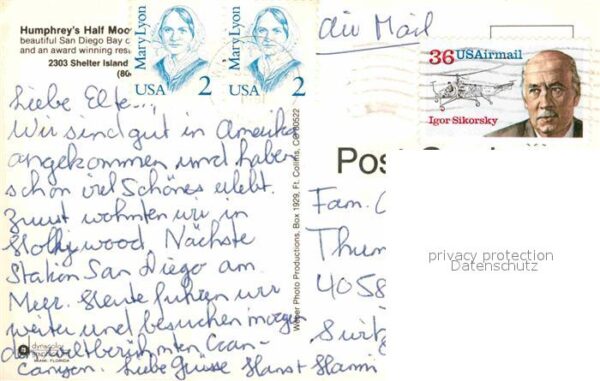 Humphrey's Half Moo
beautiful San Diego Bay
and an award winning res
2303 Shelter Island
(80
Mary Lyon
USA 2
Mary Lyon
USA 2
Air Mail
36 USAirmail
Igor Sikorsky
Liebe Elke...,
Wir sind gut in Amerika
angekommen und haben
schon viel Schönes erlebt.
Zuerst wohnten wir in
Hollywood. Nächste
Station San Diego am
Meer. Heute fuhren wir
weiter und besuchen morgen
den weltberühmten Gran-
Canyon. Liebe Grüsse Hanst Hanni
Box 1929, Ft. Collins, CO 80522
Photo Productions,
Post
Fam.
Thur
4058
privacy protection
Datenschutz